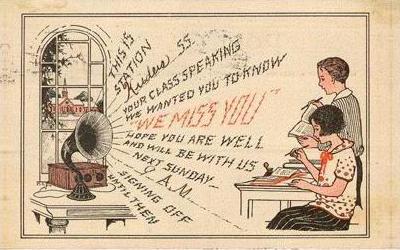 THIS IS
STATION
Anders SS.
YOUR CLASS SPEAKING
WE WANTED YOU TO KNOW
"WE MISS YOU"
HOPE YOU ARE WELL
AND WILL BE WITH US
NEXT SUNDAY
9 A.M.
SIGNING OFF
UNTIL THEN